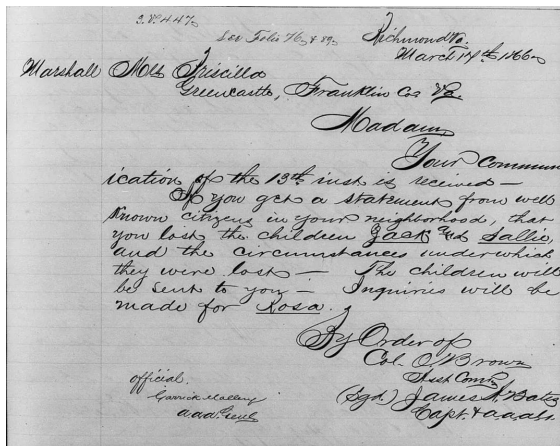 See Folio 76 & 89
Richmond Va
March 14th 1866
Marshall Mrs Priscilla
Greencastle, Franklin Co
Madam
Your commun
ication of the 13th inst is received —
If you get a statement from well
known citizens in your neighborhood, that
you lost the children Jack and Sallie,
and the circumstances under which
they were lost — The children will
be sent to you — Inquiries will be
made for Rosa.
By Order of
Col. O. Brown
Asst Com
official.
(Sgd) James A. Bates
Garrick Mallery
Capt & aaag